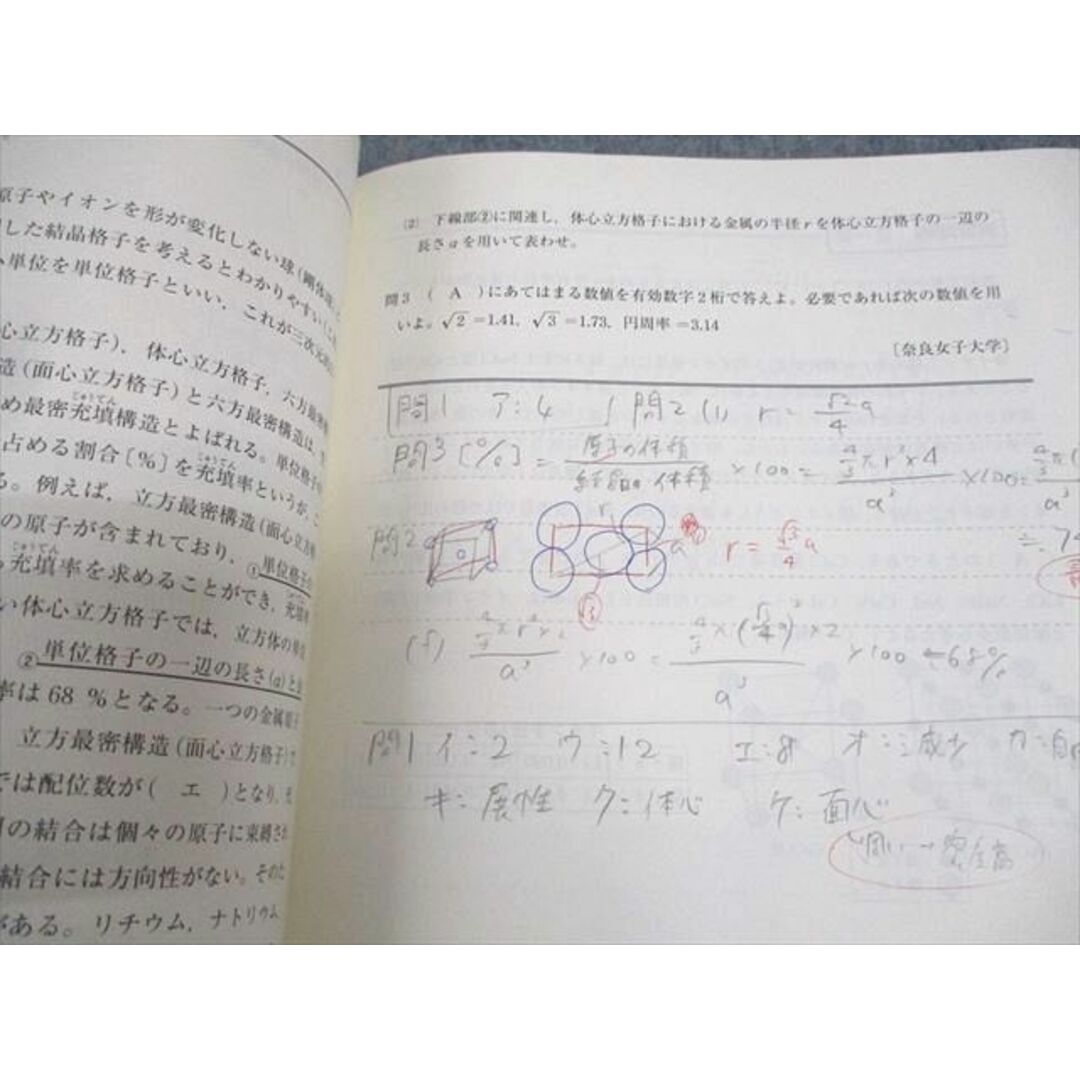 原子やイオンを形が変化しない球(剛体球
した結晶格子を考えるとわかりやすい
単位を単位格子といい，これが三次元
心立方格子)，体心立方格子，六方最密
造(面心立方格子)と六方最密構造は，
め最密充填構造とよばれる。単位格子
占める割合〔%〕を充填率というが，
る。例えば，立方最密構造(面心立方格
の原子が含まれており，①単位格子の
充填率を求めることができ，充填率
い体心立方格子では，立方体の
②単位格子の一辺の長さ(a)と
率は 68 %となる。一つの金属原子
立方最密構造(面心立方格子)で
では配位数が( エ )となり，
の結合は個々の原子に束縛され
結合には方向性がない。そのた
がある。リチウム，ナトリウム
(2) 下線部②に関連し，体心立方格子における金属の半径rを体心立方格子の一辺の
長さaを用いて表わせ。
問3 ( A )にあてはまる数値を有効数字2桁で答えよ。必要であれば次の数値を用
いよ。√2 =1.41, √3 =1.73, 円周率 =3.14
〔奈良女子大学〕
問1 ア:4 問2 (1) r= √2/4 a
問3 [%] = 原子の体積/結晶の体積 ×100 = 4/3 πr³×4/a³ ×100=
問2 r a r = √3/4 a
√3
4/3 πr³×2/a³ ×100 = 4/3 π×(√3/4 a)³×2/a³ ×100 ≒68%
問1 イ:2 ウ:12 エ:8 オ: カ:自
キ:展性 ク:体心 ケ:面心